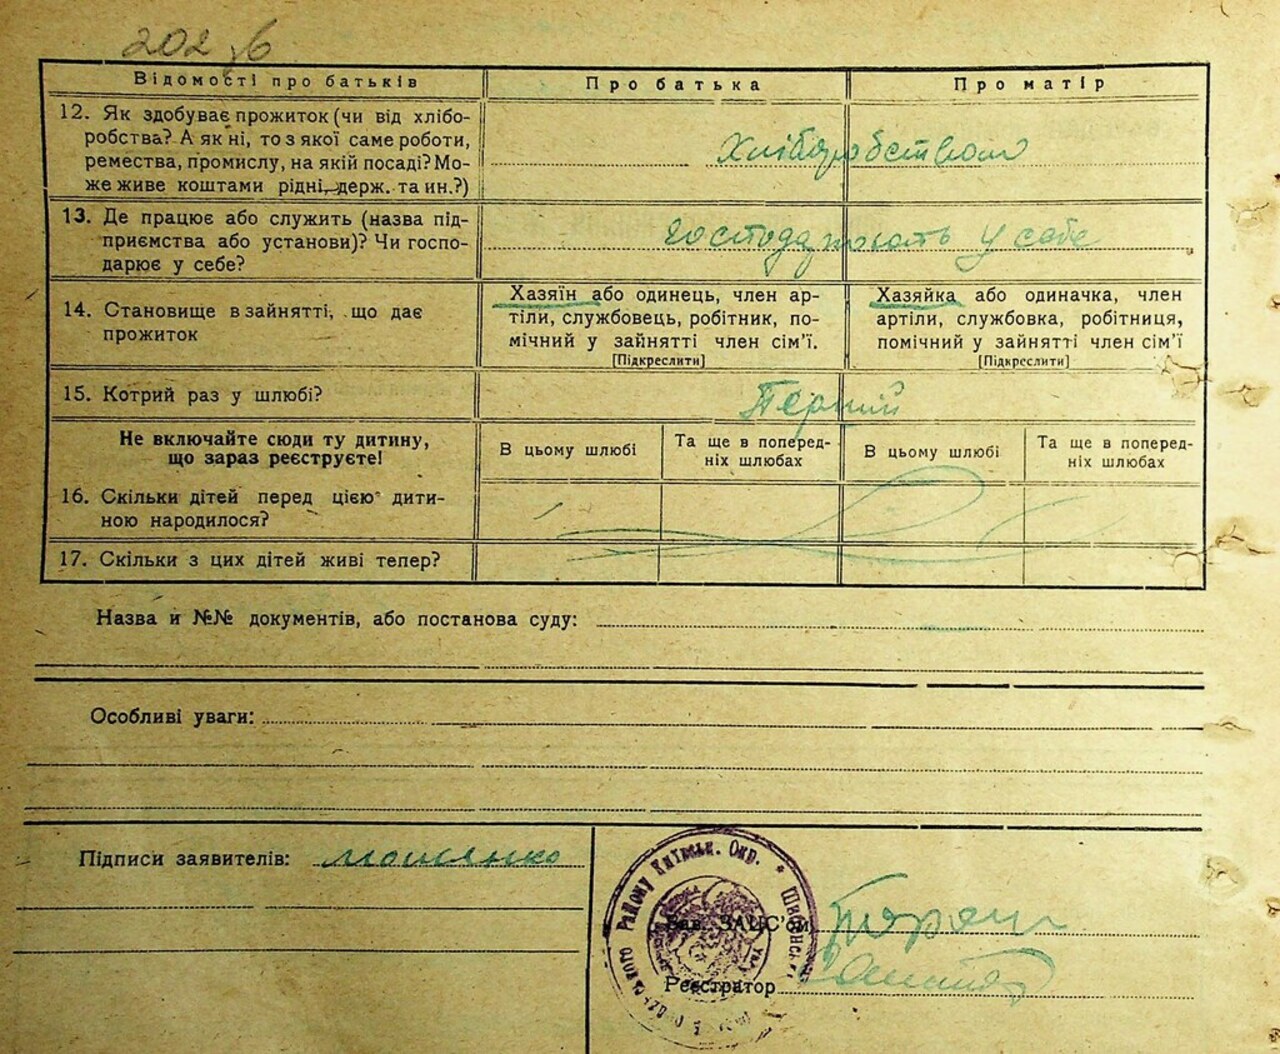 202 зв
Відомості про батьків
Про батька
Про матір
12. Як здобуває прожиток (чи від хлібо-
робства? А як ні, то з якої саме роботи,
ремества, промислу, на якій посаді? Мо-
же живе коштами рідні, держ. та ин.?)
Хліборобством
13. Де працює або служить (назва під-
приємства або установи)? Чи госпо-
дарює у себе?
господарюють у себе
14. Становище в зайнятті, що дає
прожиток
Хазяїн або одинець, член ар-
тіли, службовець, робітник, по-
мічний у зайнятті член сім’ї.
[Підкреслити]
Хазяйка або одиначка, член
артіли, службовка, робітниця,
помічний у зайнятті член сім’ї
[Підкреслити]
15. Котрий раз у шлюбі?
Перший
Не включайте сюди ту дитину,
що зараз реєструєте!
В цьому шлюбі
Та ще в поперед-
ніх шлюбах
В цьому шлюбі
Та ще в поперед-
ніх шлюбах
16. Скільки дітей перед цією дити-
ною народилося?
17. Скільки з цих дітей живі тепер?
Назва и №№ документів, або постанова суду:
Особливі уваги:
Підписи заявителів:
Зав. ЗАЦС’ом
Реєстратор
Району Київськ. Окр.